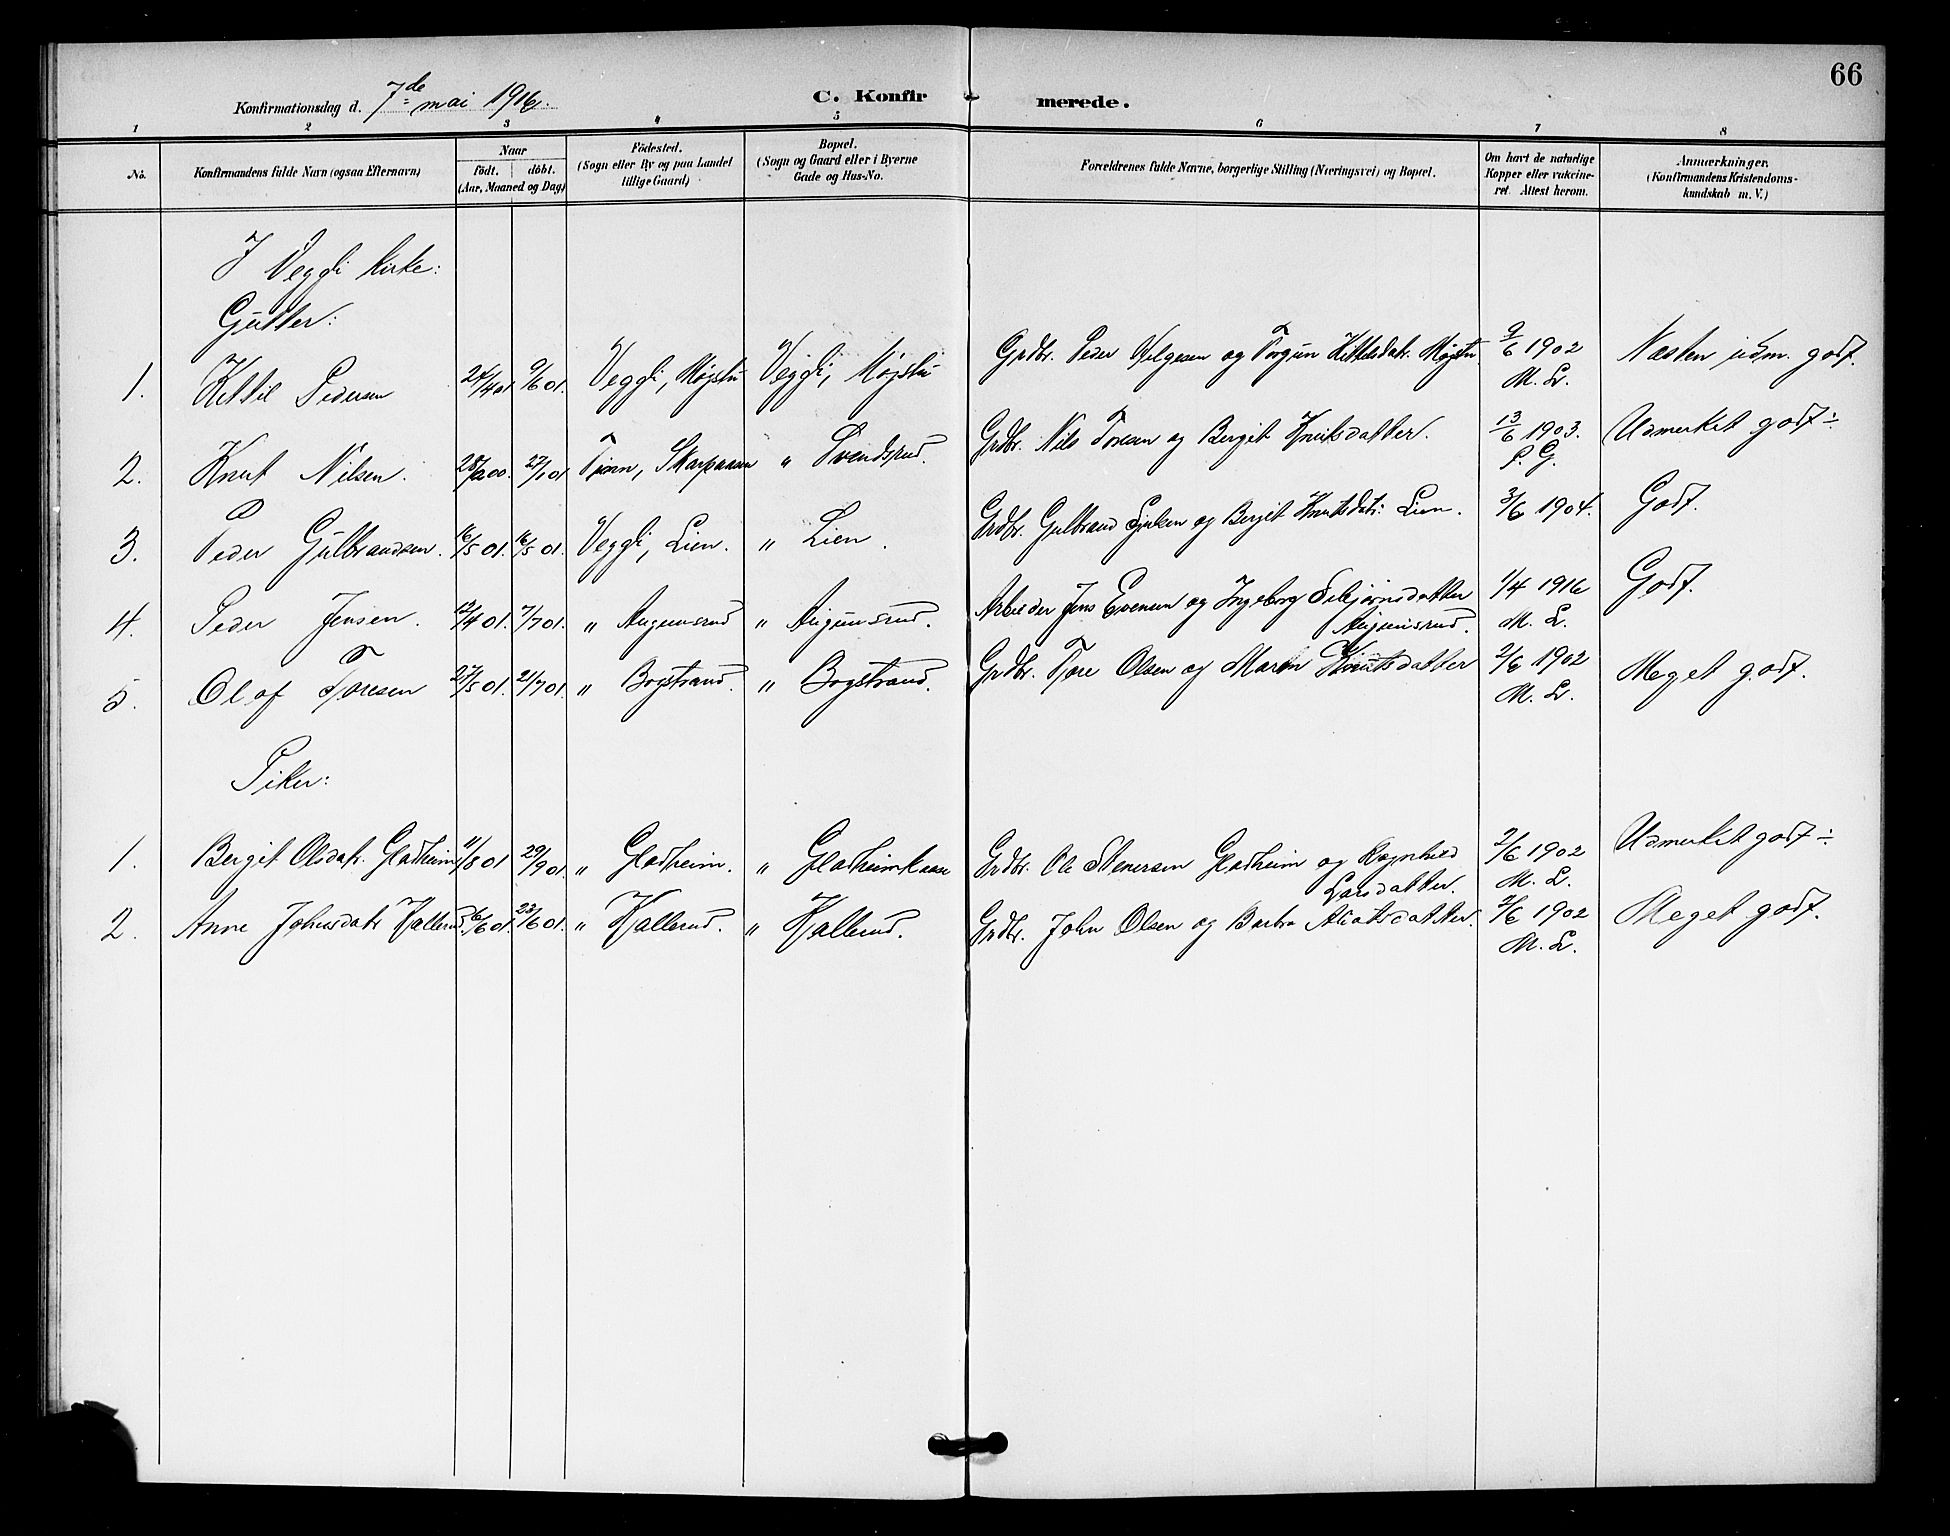 66
Konfirmationsdag d. 7de mai 1916.
C. Konfirmerede.
1 2 3 4 5 6 7 8
No.
Konfirmandens fulde Navn (ogsaa Efternavn)
Naar
födt. döbt.
(Aar, Maaned og Dag)
Födested.
(Sogn eller By og paa Landet
tillige Gaard)
Bopæl.
(Sogn og Gaard eller i Byerne
Gade og Hus-No.
Forældrenes fulde Navne, borgerlige Stilling (Næringsvei) og Bopæl.
Om havt de naturlige
Kopper eller vakcine-
ret. Attest herom.
Anmærkninger.
(Konfirmandens Kristendoms-
kundskab m. V.)
I Veggli kirke:
Gutter:
1. Kittil Pedersen 24/4 01 9/6 01. Veggli, Møjstu Veggli, Møjstu Grdbr. Peder Helgesen og Torgun Kittelsdatr. Møjstu 9/6 1902 Næsten udm. godt.
M. L.
2. Knut Nilsen. 27/1 01 Tinn, " Svendsrud. Grdbr. Nils Toresen og Bergit Knutsdatter. 13/6 1903. Udmerket godt ÷
P. G.
3. Peder Gulbrandsen. 16/5 01. 16/5 01. Veggli, Lien. " Lien. Grdbr. Gulbrand og Bergit Knutsdatr. Lien. 3/6 1904. Godt.
4. Peder Jensen. 12/4 01. 7/7 01. " Augunsrud " Augunsrud. Arbeider Jens Evensen og Ingeborg 1/4 1916 Godt.
Augunsrud. M. L.
5. Olaf Toresen 27/5 01. 21/7 01. " Bogstrand. " Bogstrand. Grdbr. Tore Olsen og Maren Knutsdatter 2/6 1902 Meget godt.
M. L.
Piker:
1. Bergit Olsdatr. Gladheim 11/8 01 29/9 01. " Gladheim. " Grdbr. Ole Stenersen Gladheim og Ragnhild 2/6 1902 Udmerket godt ÷
Larsdatter. M. L.
2. Anne Johnsdatr Kjallerud. 6/6 01. 23/6 01. " Kjallerud. " Kjallerud. Grdbr. John Olsen og Barbro 2/6 1902 Meget godt.
M. L.